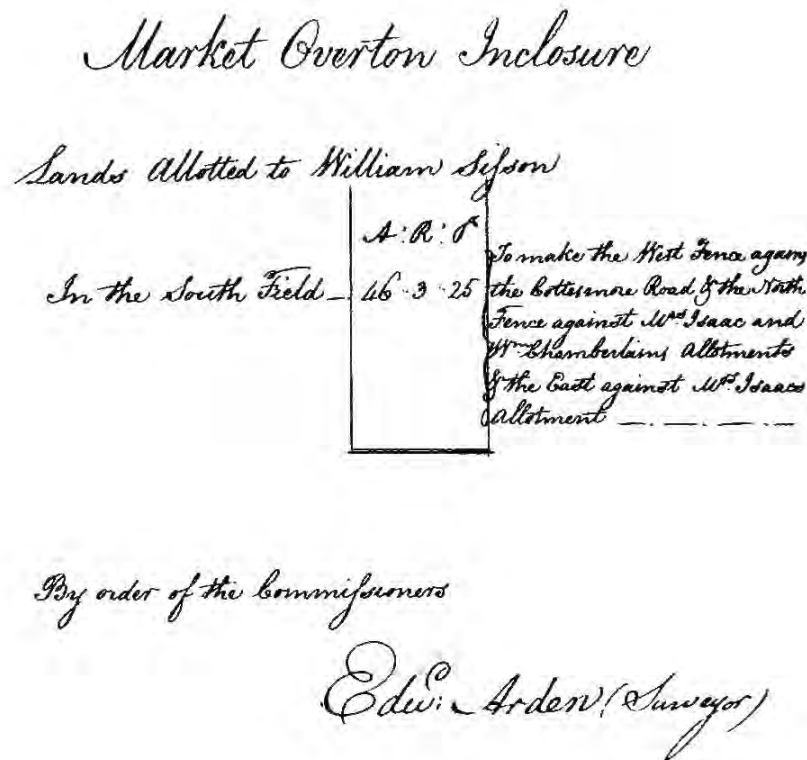 Market Overton Inclosure
Lands Allotted to William Sifson
A: R: P
In the South Field 46 3 25
To make the West Fence against
the Cottesmore Road & the North
Fence against Mrs Isaac and
Wm Chamberlains Allotments
& the East against Mrs Isaacs
Allotment
By order of the Commifsioners
Edwd: Arden (Surveyor)